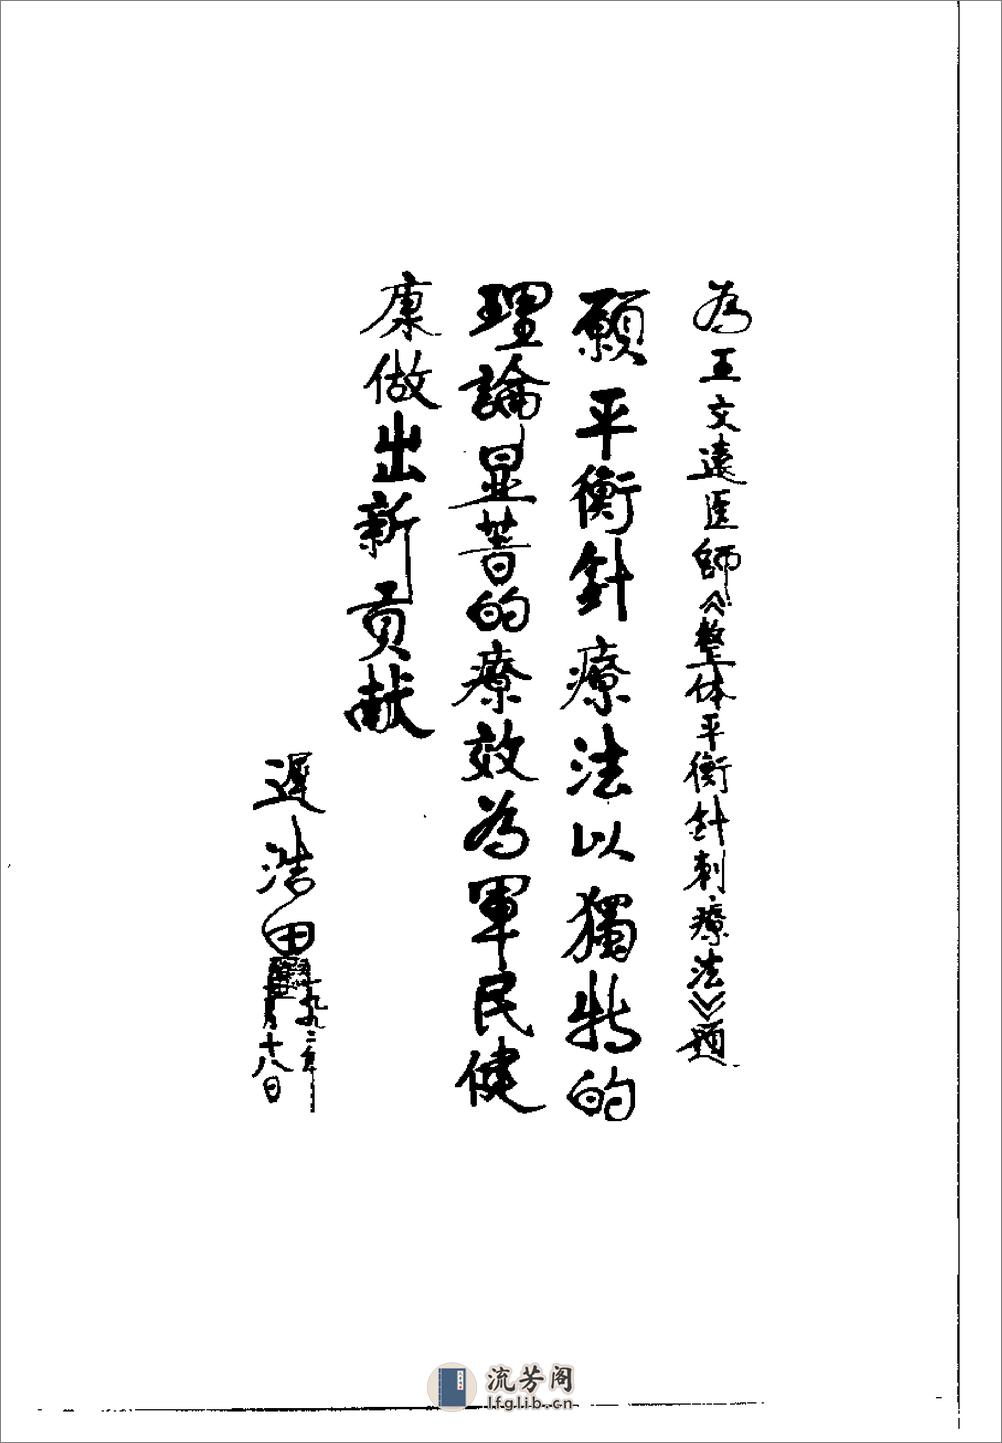 為王文遠医師《整体平衡針刺療法》題
願平衡針療法以獨特的
理論显著的療效為軍民健
康做出新贡献
遲浩田
一九九二年
月十八日
流芳阁
lfglib.cn